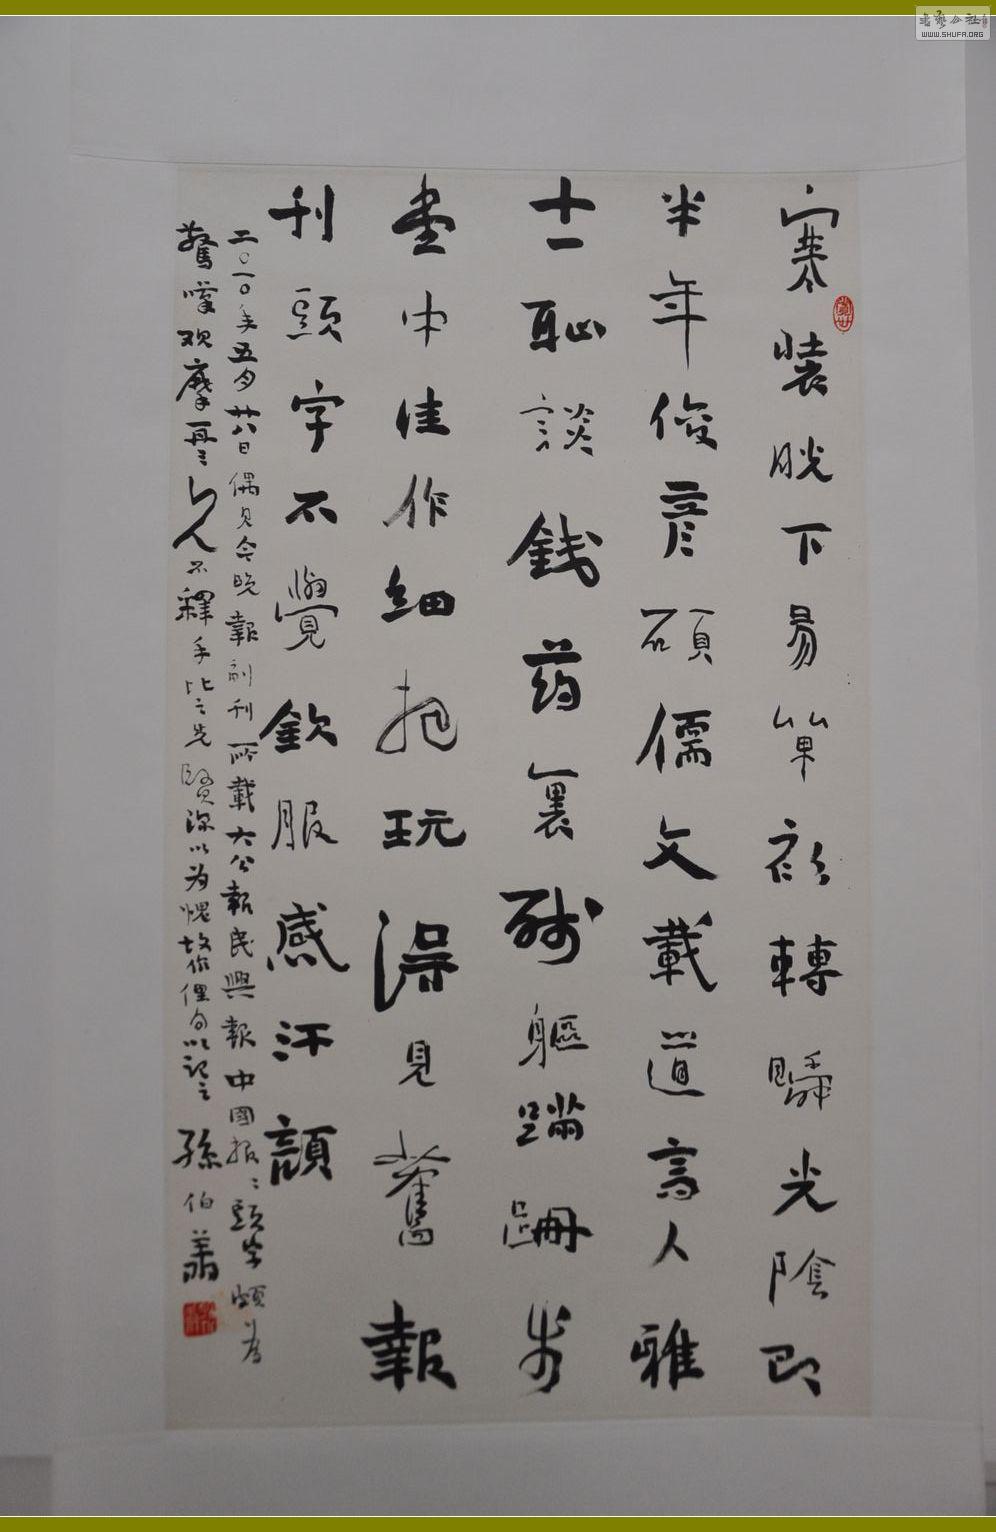 寒装脱下易箪衫轉瞬光陰即
半年俊彦碩儒文載道高人雅
士恥談錢药裹殘軀蹣跚步
畫中佳作細把玩得見舊報
刊頭字不覺欽服感汗顔
二〇一〇年五月廿八日偶見今晚報副刊所載大公報民興報中國报二頭字頗為
驚嘆观摩再三令人不釋手比之先賢深以为愧故作俚句以記之 孫伯翔
书艺公社
WWW.SHUFA.ORG